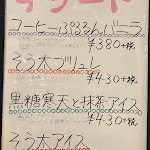 デザート
コーヒーぷるるんババーラ
¥380+税
そう太ブリュレ
¥430+税
黒糖寒天と抹茶アイス
¥430+税
そう太アイス